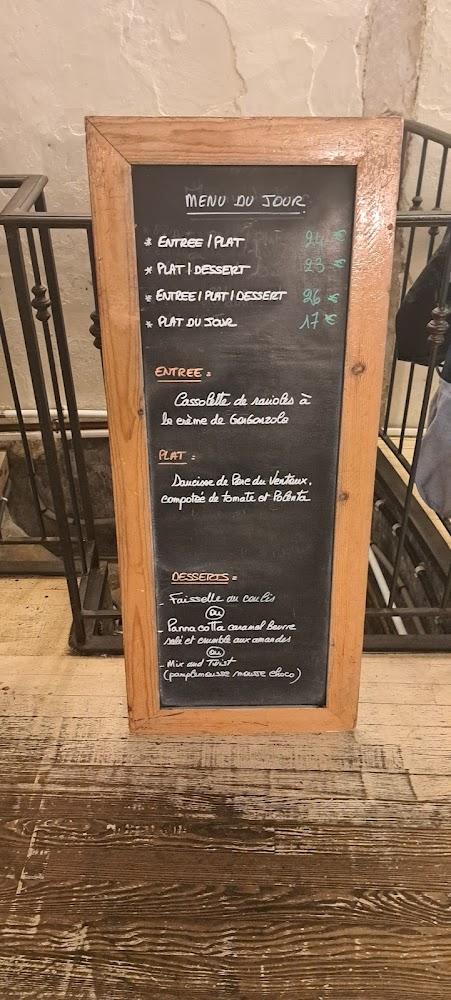 MENU DU JOUR
* ENTREE / PLAT 24 €
* PLAT / DESSERT 23 €
* ENTREE / PLAT / DESSERT 26 €
* PLAT DU JOUR 17 €
ENTREE :
Cassolette de ravioles à
la crème de Gorgonzola
PLAT :
Saucisse de Porc du Ventoux,
compotée de tomate et Polenta
DESSERTS :
- Faisselle au coulis
ou
- Panna cotta caramel beurre
salé et crumble aux amandes
ou
- Mix and Twist
(pamplemousse mousse choco)